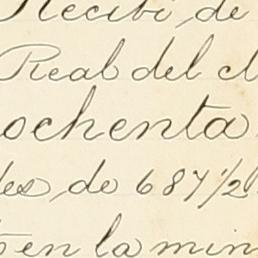 Recibí, de
Real del
ochenta
des de 687½
en la min